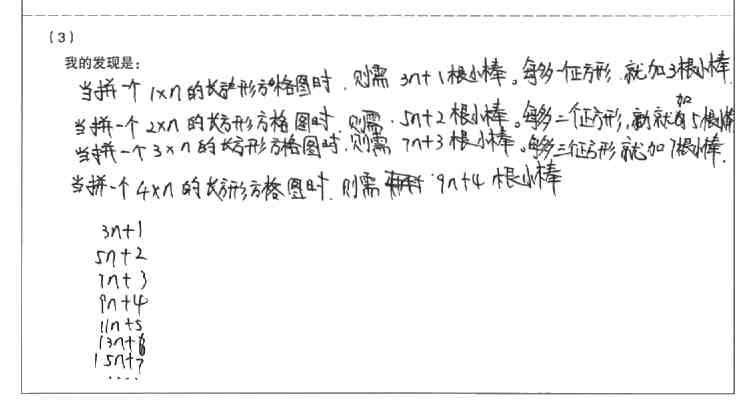 (3)
我的发现是：
当拼一个1×n的长方形方格图时，则需3n+1根小棒。每多一个正方形，就加3根小棒
当拼一个2×n的长方形方格图时，则需，5n+2根小棒。每多二个正方形，就加5根小棒
当拼一个3×n的长方形方格图时，则需7n+3根小棒。每多三个正方形就加7根小棒．
当拼一个4×n的长方形方格图时，则需9n+4根小棒
3n+1
5n+2
7n+3
9n+4
11n+5
13n+6
15n+7
····